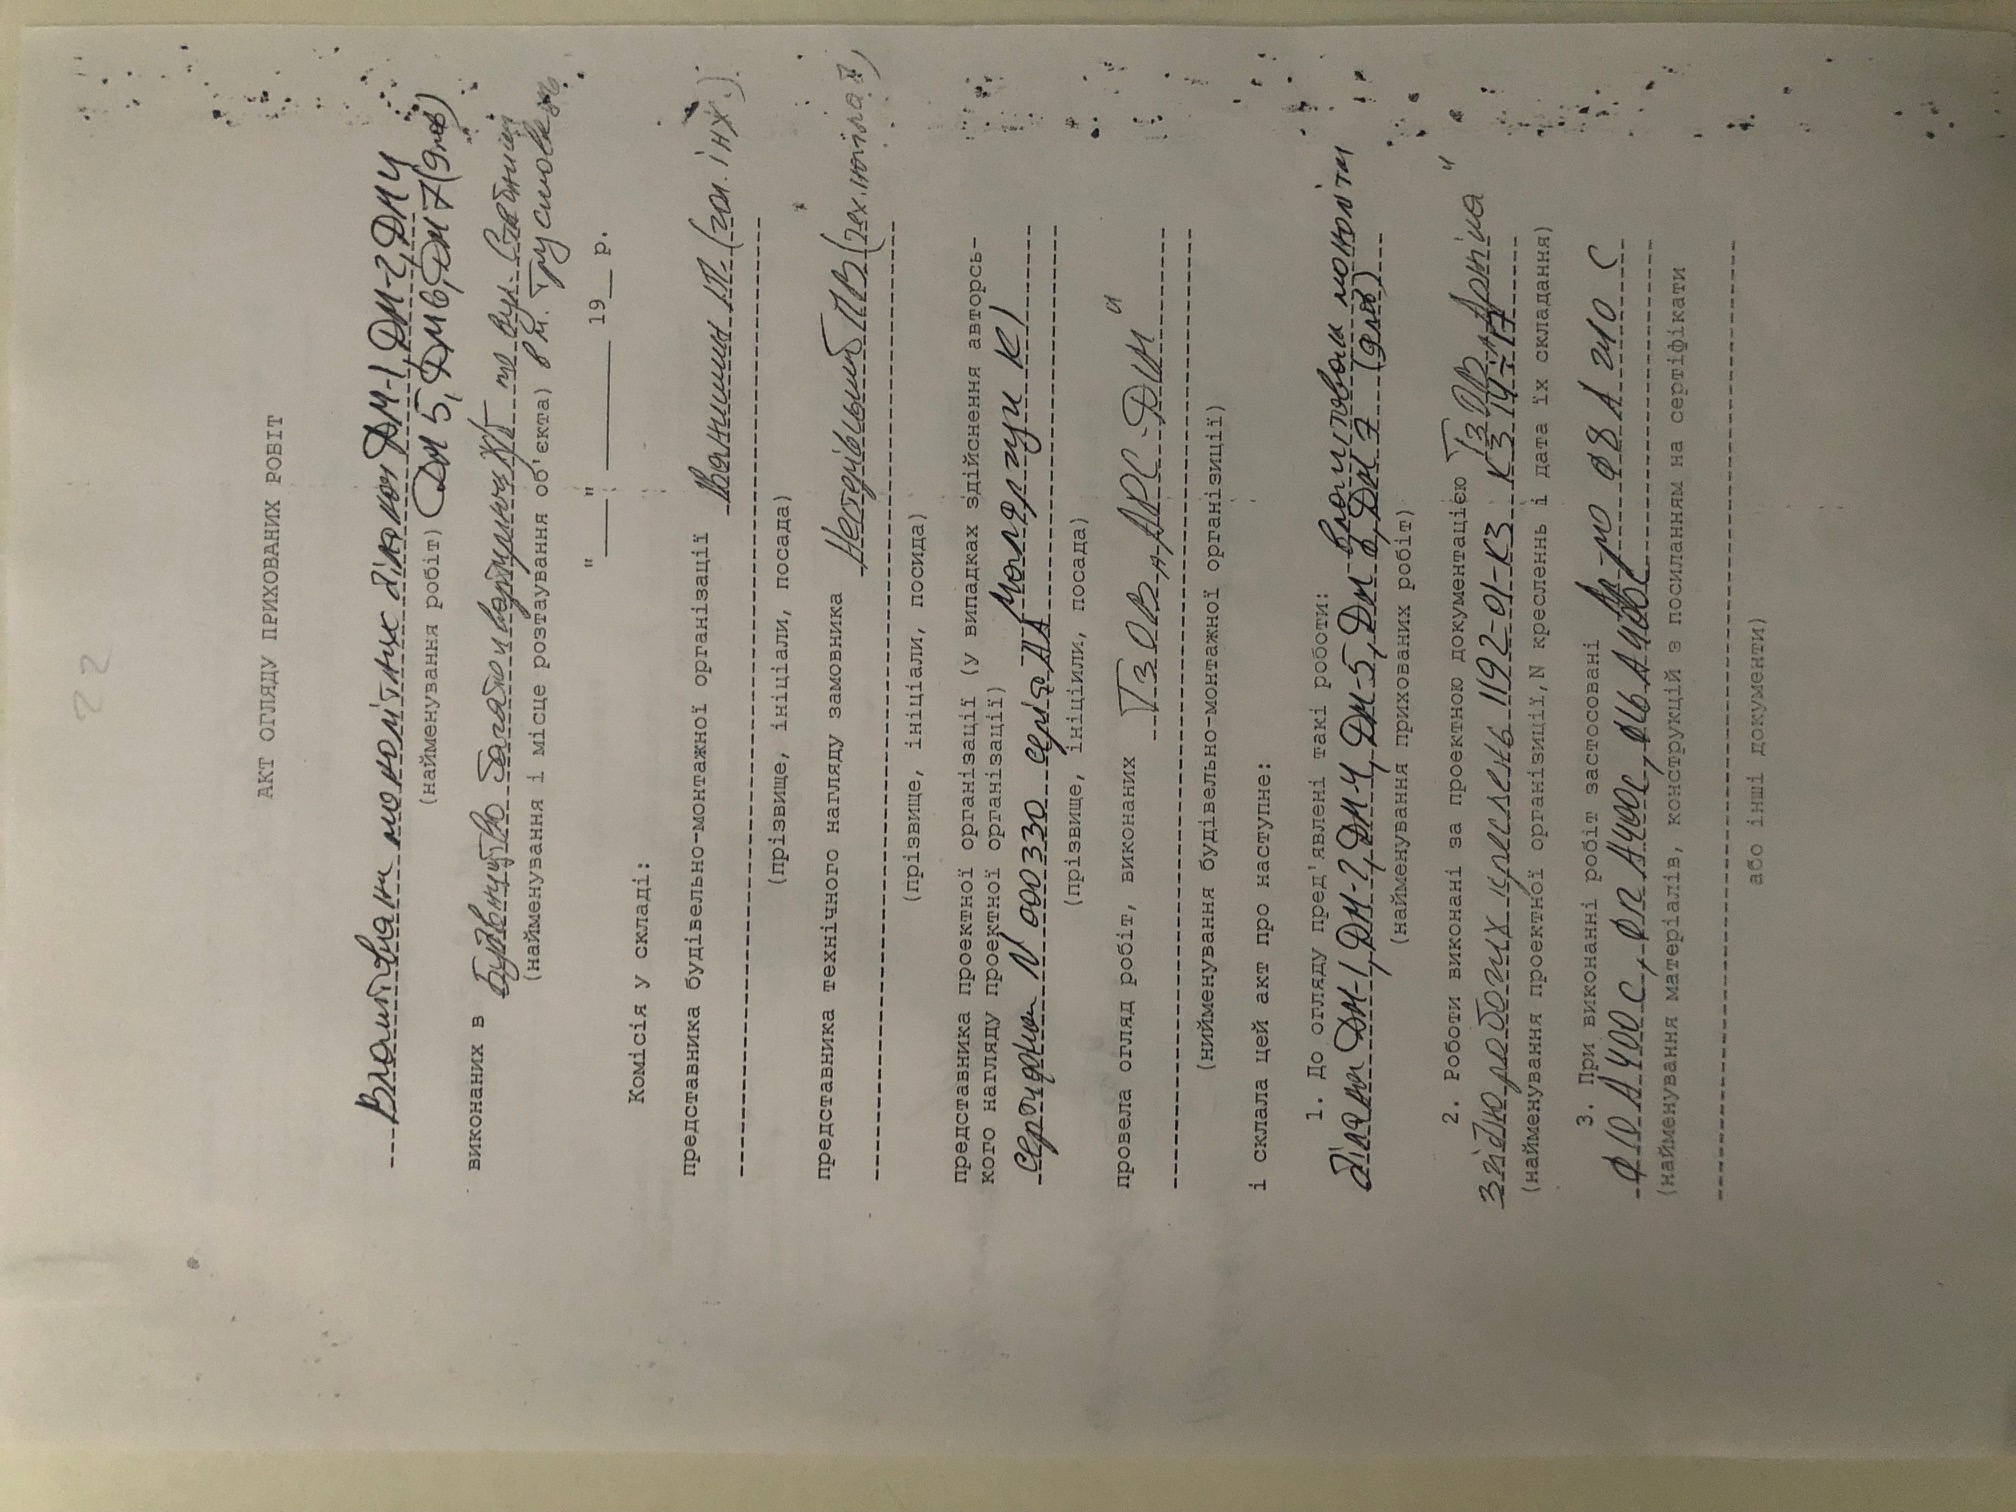 22
АКТ ОГЛЯДУ ПРИХОВАНИХ РОБІТ
Влаштування монолітних ділянок ДМ-1, ДМ-2, ДМ4
(найменування робіт) ДМ 5, ДМ6, ДМ 7 (9 пов)
виконаних в Будівництво багатоквартирних по вул.
(найменування і місце розтаування об'єкта) в м. Трускавець
"____"__________ 19__ р.
Комісія у складі:
представника будівельно-монтажної організації (гол. інж.)
(прізвище, ініціали, посада)
представника технічного нагляду замовника (тех. нагляд)
(прізвище, ініціали, посида)
представника проектної організації (у випадках здійснення авторсь-
кого нагляду проектної організації)
сертифікат N 000330 серія АА
(прізвище, ініціили, посада)
провела огляд робіт, виконаних ТзОВ "АРС-ДИМ"
(нийменування будівельно-монтажної організиції)
і склала цей акт про наступне:
1. До огляду пред'явлені такі роботи: Влаштування монолітн
ділянки ДМ-1, ДМ-2, ДМ-4, ДМ-5, ДМ 6, ДМ 7 (9 пов)
(найменування прихованих робіт)
2. Роботи виконані за проектною документацією ТзОВ "Арніка"
Згідно робочих креслень 1192-01-КЗ КЗ
(найменування проектної організиції, N креслень і дата їх складання)
3. При виконанні робіт застосовані
Ф10 А400С, Ф12 А400С, Ф16 А400С Ф8 А240 С
(найменування матеріалів, конструкцій з посиланням на сертіфікати
або інші документи)